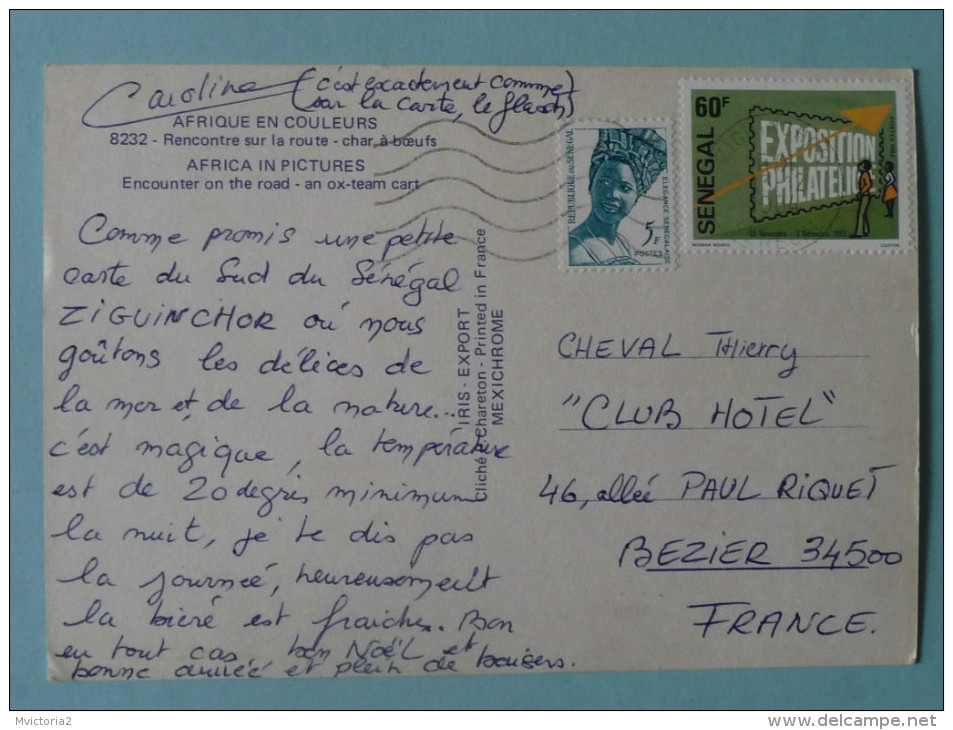 Caroline (c'est exactement comme
sur la carte, le flash)
AFRIQUE EN COULEURS
8232 - Rencontre sur la route - char à bœufs
AFRICA IN PICTURES
Encounter on the road - an ox-team cart
Comme promis une petite
carte du Sud du Sénégal
ZIGUINCHOR où nous
goûtons les délices de
la mer et de la nature...
c'est magique, la température
est de 20 degrés minimum
la nuit, je te dis pas
la journeé, heureusement
la bière est fraiche. Bon
en tout cas bon NOËL et
bonne année et plein de baisers.
IRIS - EXPORT
Cliché Chareton - Printed in France
MEXICHROME
REPUBLIQUE DU SENEGAL
ELEGANCE SENEGALAISE
5F
POSTES
60F
SENEGAL
EXPOSITION
PHILATELIQUE
CHEVAL Thierry
"CLUB HOTEL"
46, allée PAUL RIQUET
BEZIER 34500
FRANCE.
Mvictoria2
www.delcampe.net